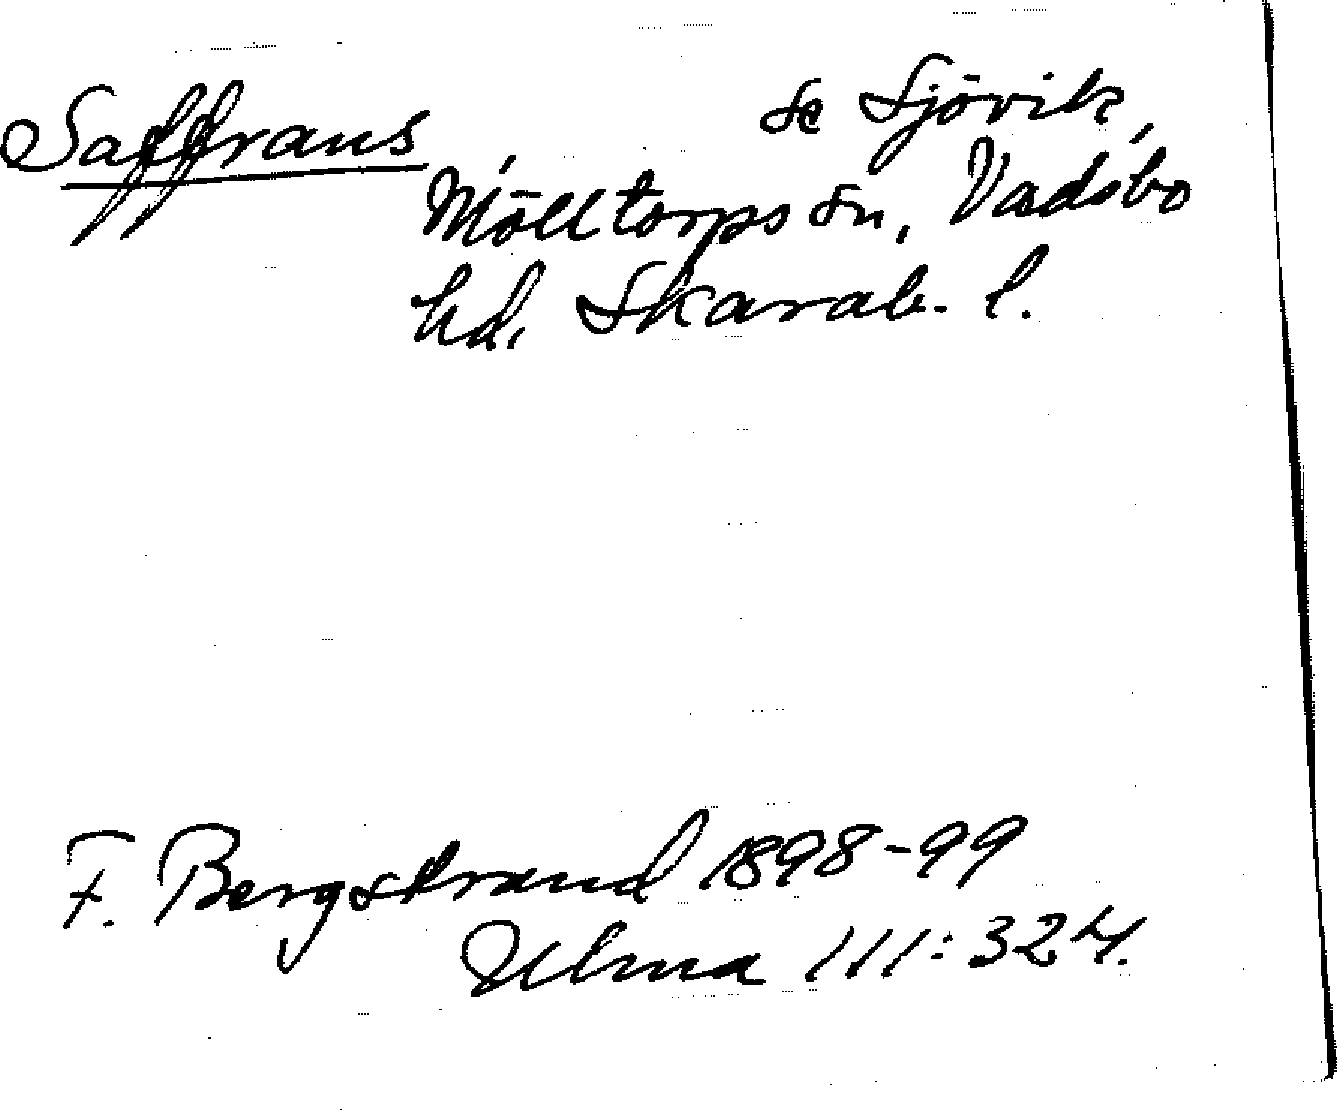 Saffrans se Sjövik,
Mölltorps sn, Vadsbo
hd, Skarab. l.
F. Bergstrand 1898-99
Ulma 111:324.